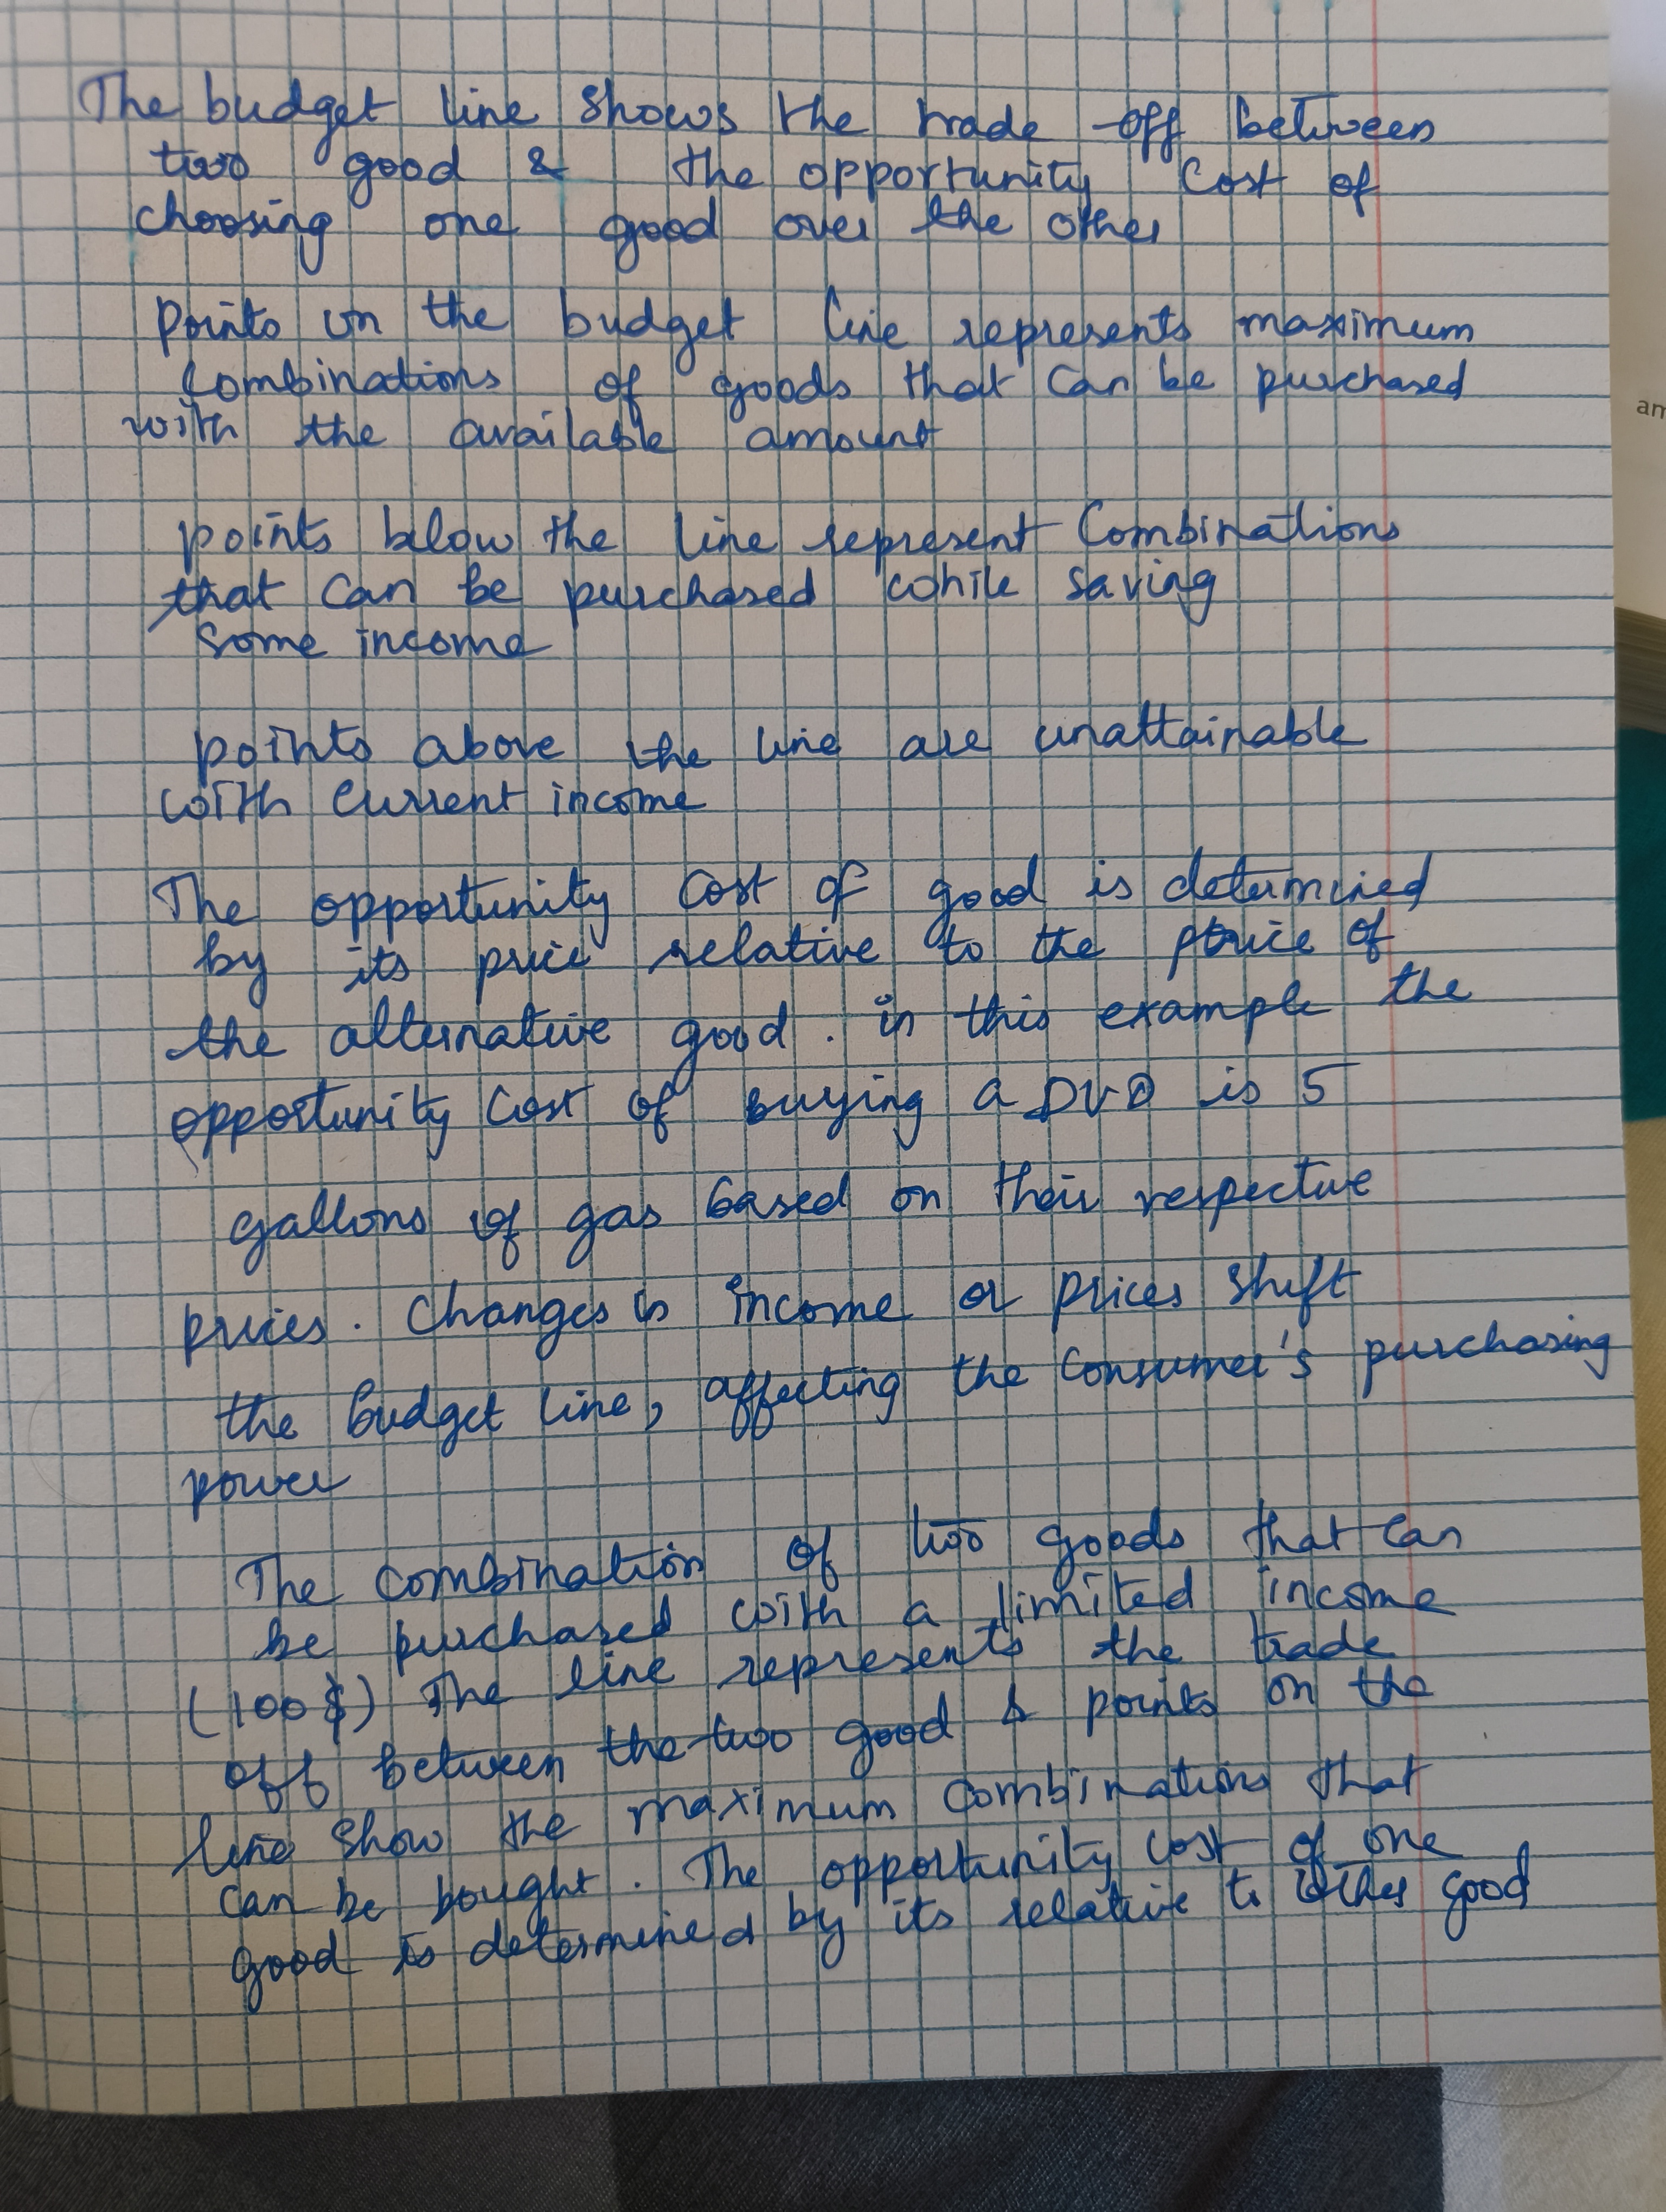 The budget line shows the trade-off between
two good & the opportunity cost of
choosing one good over the other
points on the budget line represents maximum
combinations of goods that can be purchased
with the available amount
points below the line represent combinations
that can be purchased while saving
some income
points above the line are unattainable
with current income
The opportunity cost of good is determined
by its price relative to the price of
the alternative good. in this example the
opportunity cost of buying a DVD is 5
gallons of gas based on their respective
prices. Changes in income or prices shift
the budget line, affecting the consumer's purchasing
power
The combination of two goods that can
be purchased with a limited income
(100$) The line represents the trade
off between the two good & points on the
line show the maximum combinations that
can be bought. The opportunity cost of one
good is determined by its relative to other good
am